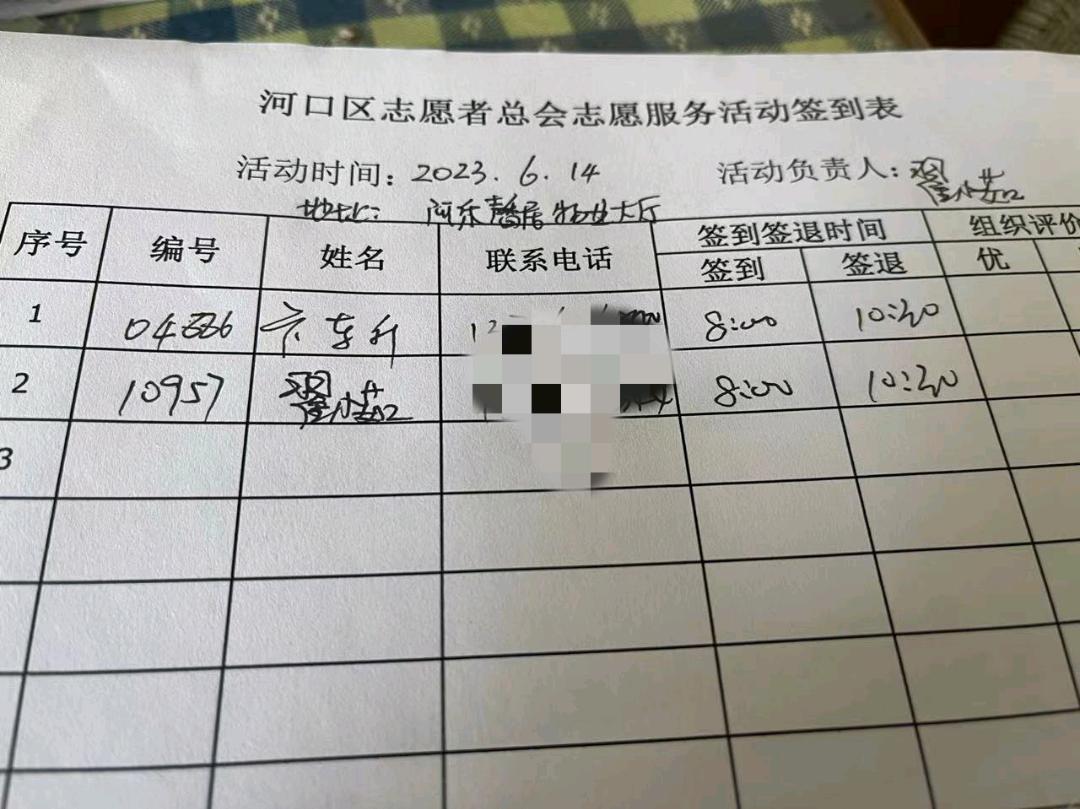 河口区志愿者总会志愿服务活动签到表
活动时间：2023.6.14 活动负责人：翟
地址： 河东馨居物业大厅
序号 编号 姓名 联系电话 签到签退时间 组织评价
签到 签退 优
1 8:00 10:30
2 10957 翟 8:00 10:30
3